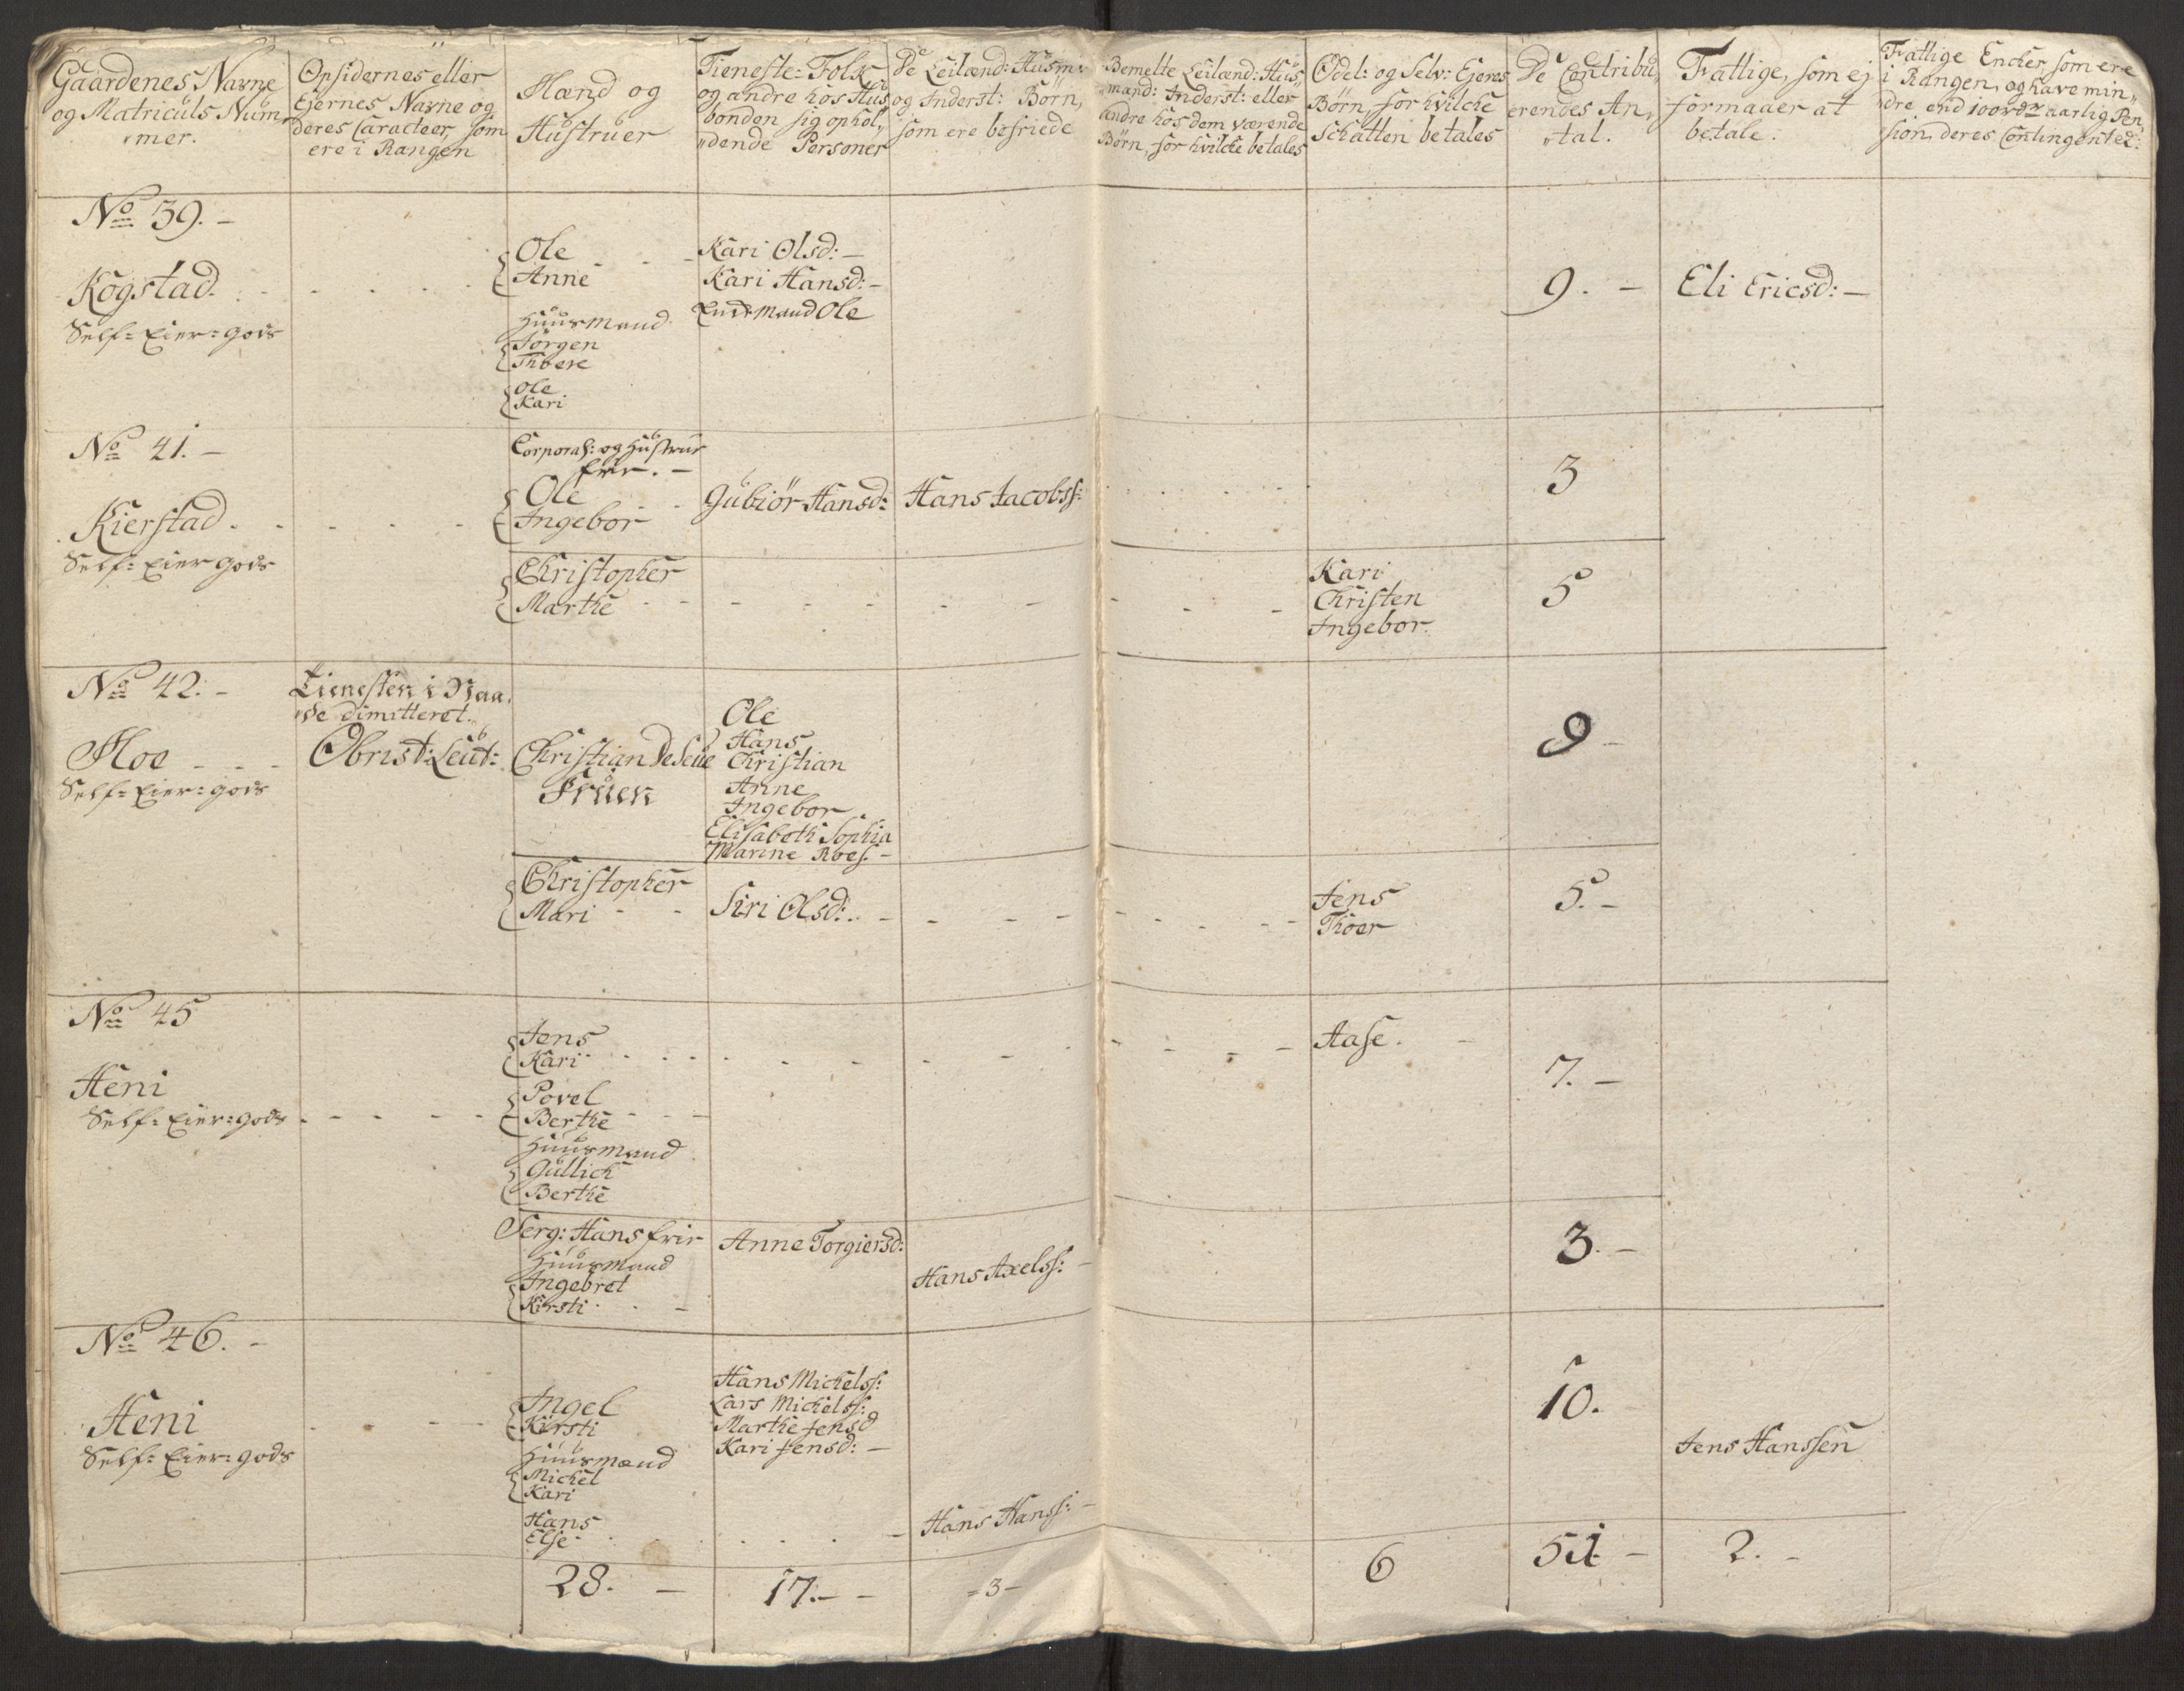 Gaardenes Navne
og Matriculs Num„
„mer.
Opsidernes eller
Ejernes Navne og
deres Caracteer, som
ere i Rangen
Mænd og
Hustruer
Tieneste-Folk,
og andre hos Hus„
bonden sig ophol„
„dende Personer
De Leilænd: Husm:
og Inderst: Börn,
som ere befriede
Bemelte Leilænd: Hus„
„mænd: Inderst: eller
andre hos dem værende
Börn, for hvilcke betales
Odel: og Selv: Ejeres
Börn, for hvilcke
Schatten betales
De Contribu„
erendes An„
„tal.
Fattige, som ej
formaaer at
betale.
Fattige Encker, som ere
i Rangen, og have min„
dre end 100 rdr aarlig Pen„
sion, deres Contingented:
No 39. -
Kogstad.
Self-Eier-gods
Ole
Anne
Huusmænd
Jörgen
Thore
Ole
Kari
Kari Olsd: -
Kari Hansd: -
Ole
9. -
Eli Ericsd: -
No 41. -
Kierstad.
Self-Eier gods
Corporal: og Hustrue
frie. -
Ole
Ingebor
Gubiör Hansd:
Hans Jacobss:
3
Christopher
Marthe
Kari
Christen
Ingebor
5
No 42. -
Moe
Self-Eier-gods
Tienesten i Naa„
„de dimitteret.
Obrist: Leut:
Christian De Seue
Fruen
Ole
Hans
Christian
Anne
Ingebor
Elisabeth Sophia
Marine Roes. -
9 -
Christopher
Mari
Siri Olsd:
Jens
Thoer
5. -
No 45
Heni
Self-Eier-gods
Jens
Kari
Povel
Berthe
Huusmænd
Gullich
Berthe
Aase
7. -
Serg: Hans frie
Huusmænd
Ingebret
Kirsti
Anne Torgiersd:
Hans Axelss: -
3. -
No 46. -
Heni
Self-Eier-gods
Ingel
Kirsti
Huusmænd
Michel
Kari
Hans
Else
Hans Michelss:
Lars Michelss:
Marthe Jensd
Kari Jensd: -
Hans Hanss: -
10.
Jens Hanssen
28. -
17. -
- 3 -
6
51 -
2. -